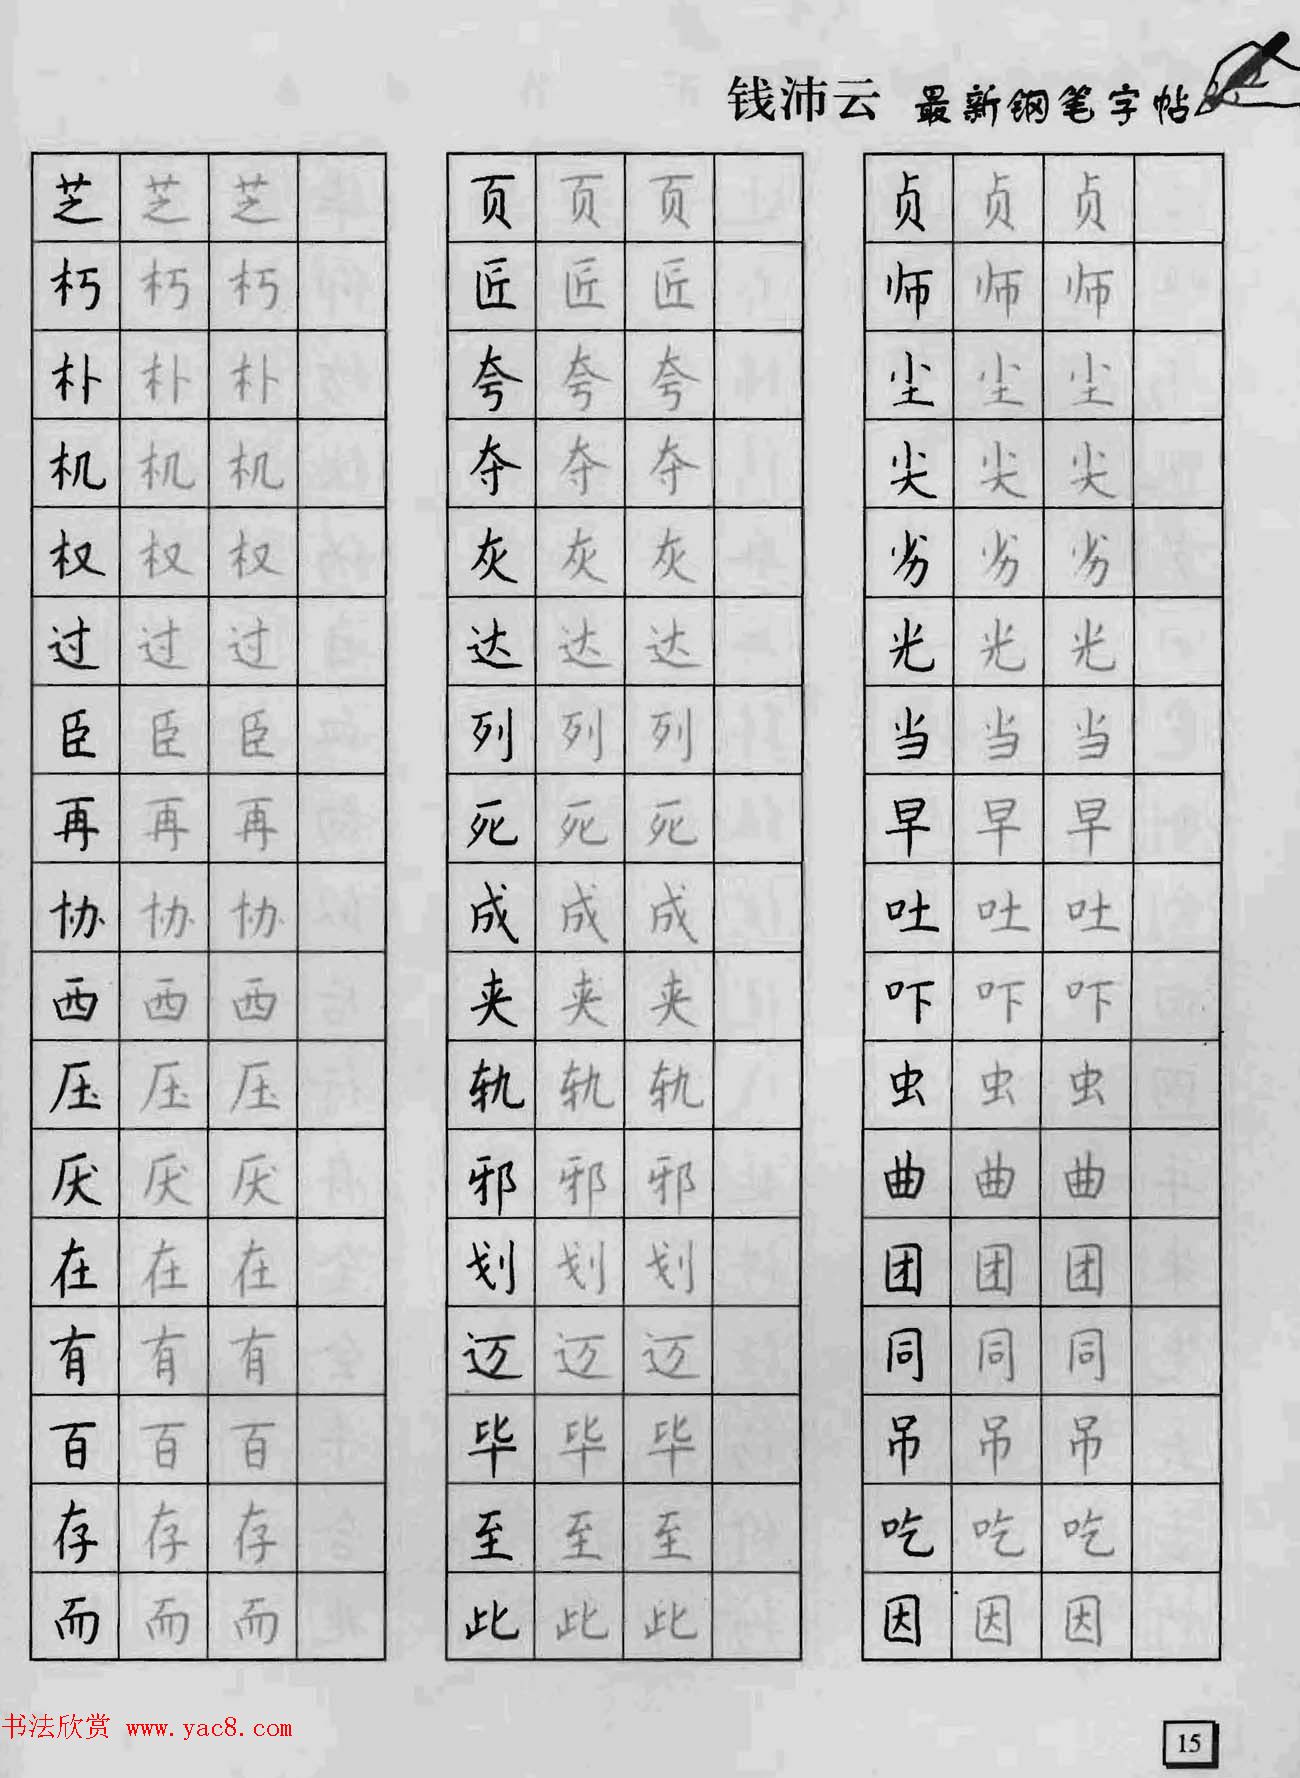 钱沛云 最新钢笔字帖
芝 芝 芝 页 页 页 贞 贞 贞
朽 朽 朽 匠 匠 匠 师 师 师
朴 朴 朴 夸 夸 夸 尘 尘 尘
机 机 机 夺 夺 夺 尖 尖 尖
权 权 权 灰 灰 灰 劣 劣 劣
过 过 过 达 达 达 光 光 光
臣 臣 臣 列 列 列 当 当 当
再 再 再 死 死 死 早 早 早
协 协 协 成 成 成 吐 吐 吐
西 西 西 夹 夹 夹 吓 吓 吓
压 压 压 轨 轨 轨 虫 虫 虫
厌 厌 厌 邪 邪 邪 曲 曲 曲
在 在 在 划 划 划 团 团 团
有 有 有 迈 迈 迈 同 同 同
百 百 百 毕 毕 毕 吊 吊 吊
存 存 存 至 至 至 吃 吃 吃
而 而 而 此 此 此 因 因 因
书法欣赏 www.yac8.com
15